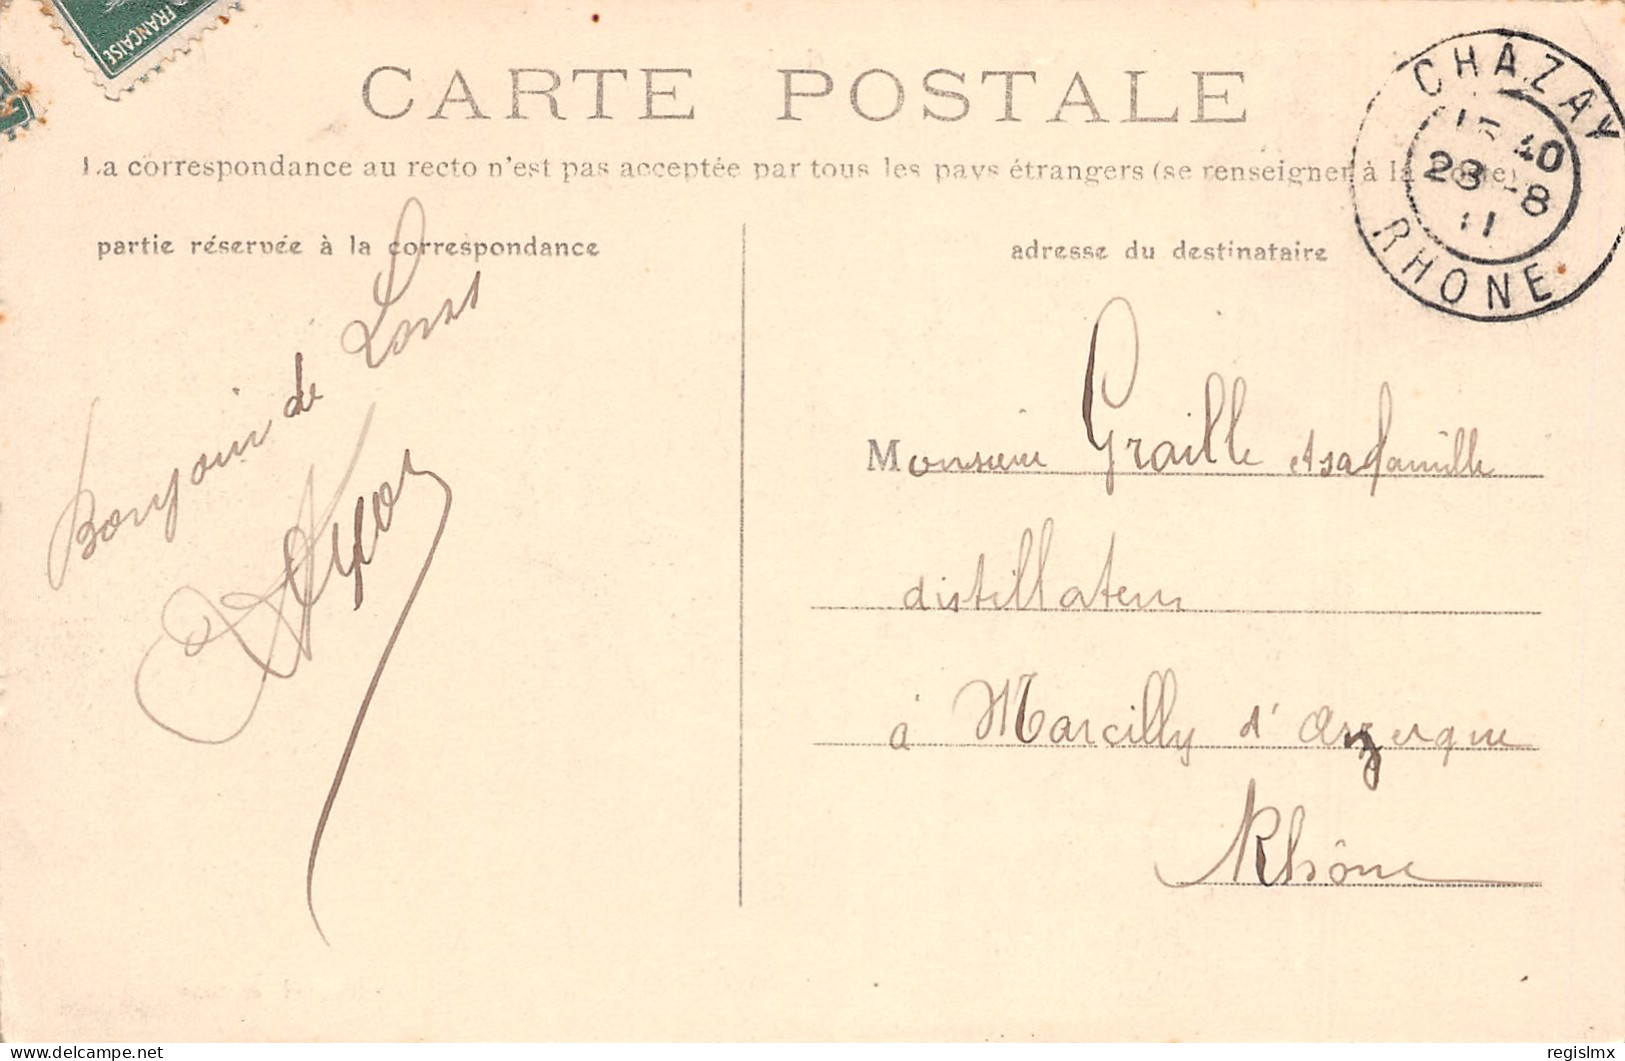 FRANÇAISE
CARTE POSTALE
La correspondance au recto n'est pas acceptée par tous les pays étrangers (se renseigner à la Poste)
CHAZAY
40
28 -8
11
RHONE
partie réservée à la correspondance
adresse du destinataire
Bonjour de
Monsieur Graille et sa famille
distillateur
à Marcilly d'azergue
Rhône
delcampe.net
regislmx